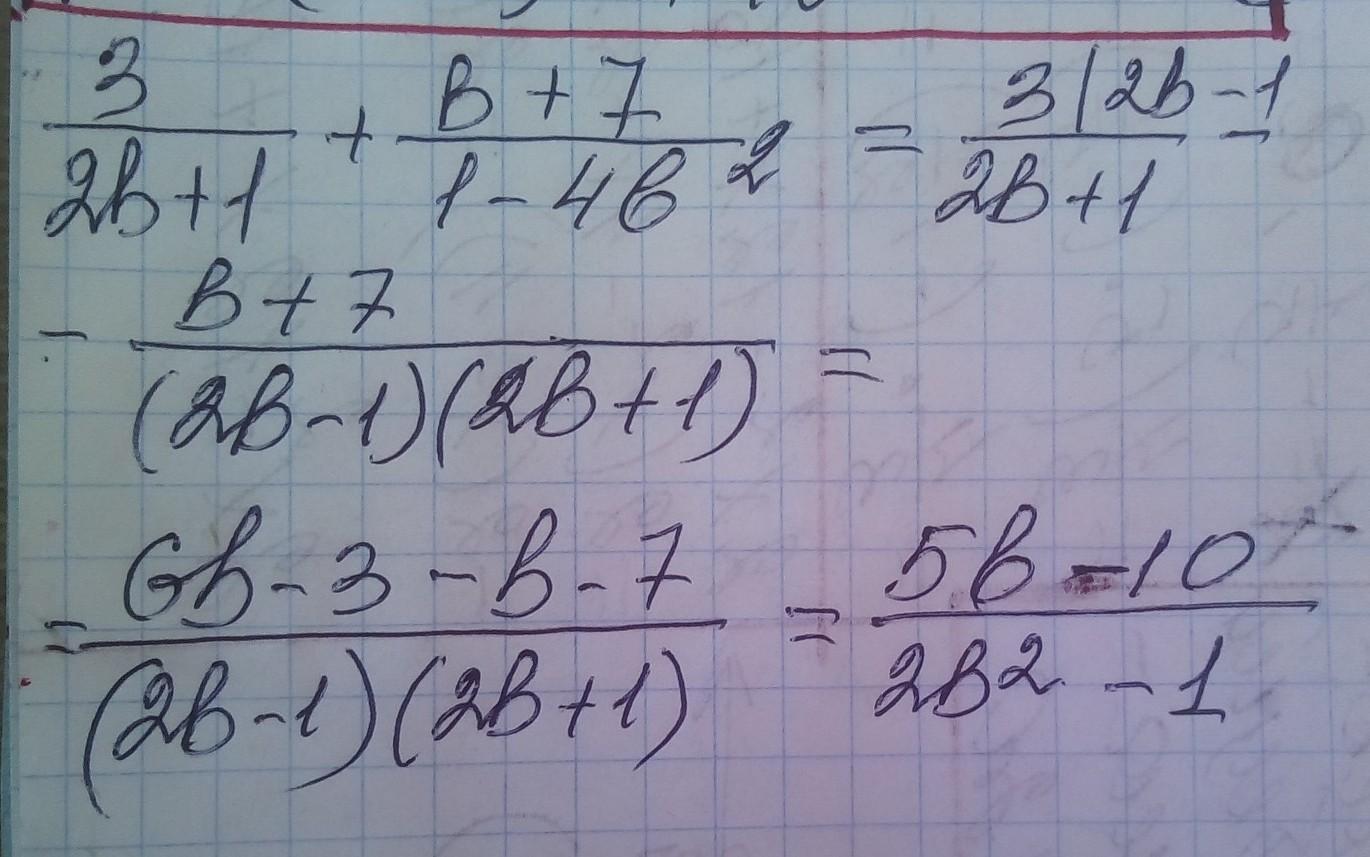 3/(2b+1) + (b+7)/(1-4b²) = 3|2b-1/(2b+1) -
- (b+7)/((2b-1)(2b+1)) =
= (6b-3-b-7)/((2b-1)(2b+1)) = (5b-10)/(2b²-1)